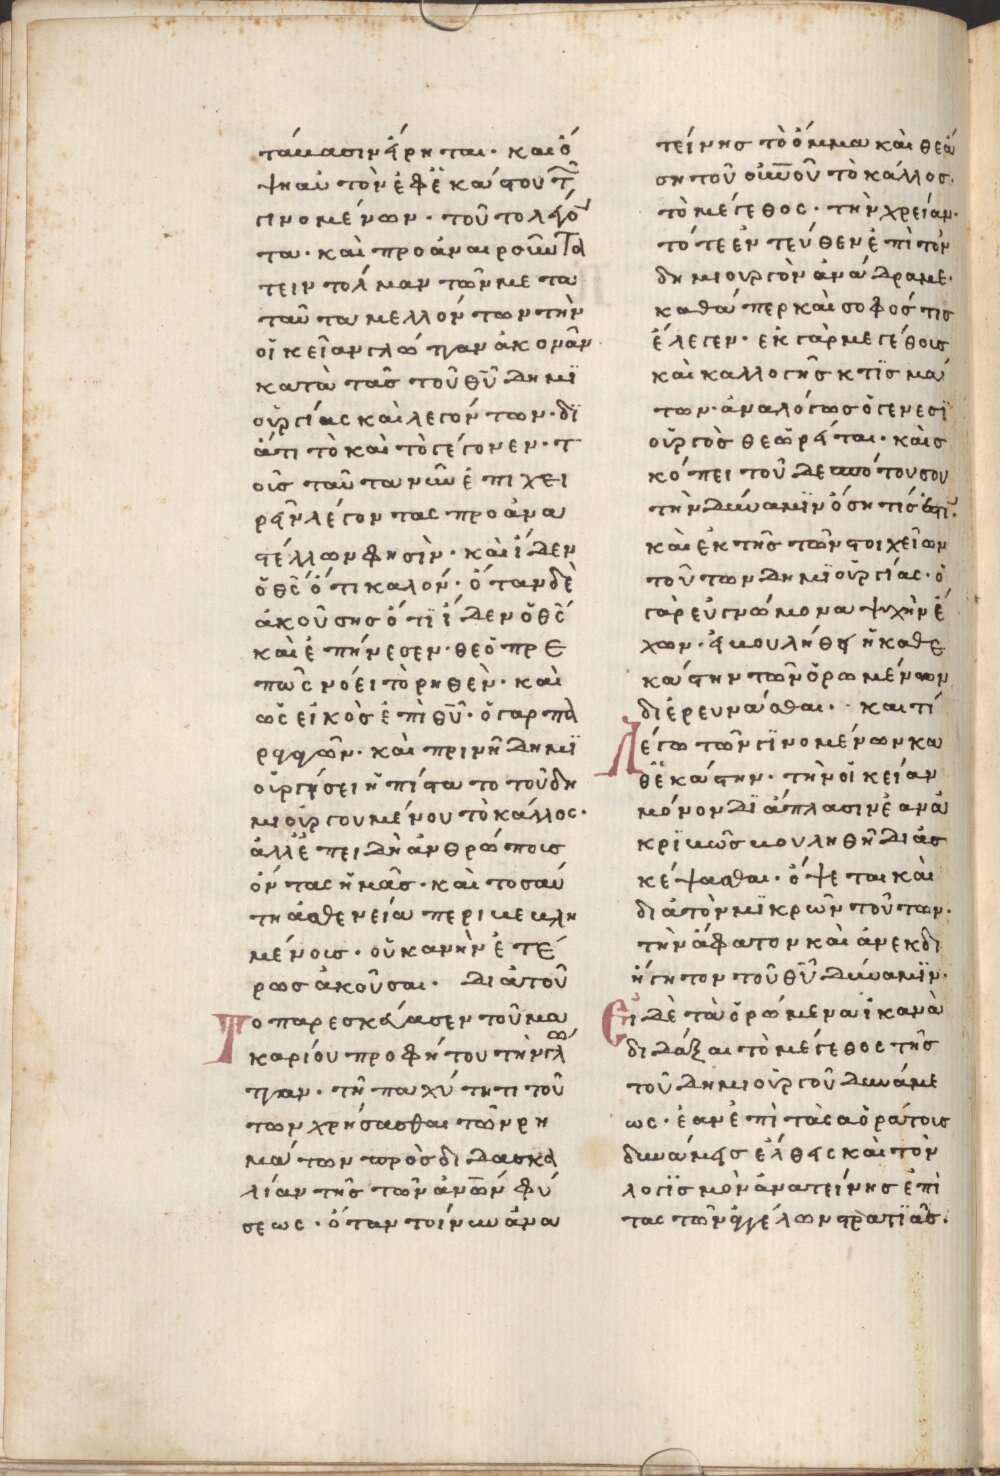 τάμασιν εἴρηται· και ὄ
ψη αὐτὸν ἐφ ἑκάστου τῶν
γινομένων· τοῦτο λέγον
τα· καὶ προαναιροῦντα
τειν τολμαν των μετα
ταῦτα μελλόντων τὴν
οἰκείαν γλῶτταν ἀκονᾶν
κατὰ τὰσ τοῦ θῦ δημϊ
ουργίας καὶ λεγόντων· δϊ
ἁτι τὸ καὶ τὸ γέγονεν· τ
οῖς ταῦτα νῦν ἐπιχει
ρεῖν λέγοντας προανα
στέλλων φησὶν· καὶ ἴδεν
ὁ θς ὅτι καλόν· ὅταν δὲ
ἀκούσησ ὅτϊ ἴδεν ὁ θς
καὶ ἐπήνεσεν· θεοπρε
πῶς νόει τὸ ρηθὲν· καὶ
ὡς εἰκὸσ ἐπὶ θῦ· ὁ γαρ πα
ρηγων· καὶ πρινὴ δημϊ
ουργήσει ἠπίστατο τοῦ δη
μιουργουμένου τὸ κάλλος·
ἀλλἐπειδὴ ἀνθρώποις
ὄντας ἡμᾶσ· καὶ τοσαύ
τη ἀσθενεία περιβεβλη
μένοισ· οὐκ ἀνὴν ἐτέ
ρωσ ἀκοῦσαι· Διὰ τοῦ
Το παρεσκεύασεν τοῦ μα
καρίου προφήτου τὴν γλῶ
τταν· τῆ παχύτητι τοῦ
των χρήσασθαι τῶν ρη
μάτων πρὸσ διδασκα
λίαν τῆσ τῶν ἀνων φύ
σεως· ὅταν τοίνυν ἀνα
τείνησ τὸ ὄμμα καὶ θεά
ση τοῦ οὐνοῦ τὸ κάλλος·
τὸ μέγεθος· τὴν χρείαν·
τότε ἐντεύθεν ἐπὶ τὸν
δημιουργὸν ἀνάδραμε·
καθάπερ καὶ σοφόσ τισ
ἔλεγεν· ἐκ γὰρ μεγέθοις
καὶ καλλογῆσ κτϊσμά
των· ἀναλόγωσ ὁ γενεσϊ
ουργὸσ θεωρεῖται· καὶ σ
κόπει τοῦ δεσπότου σου
τὴν δύναμϊν ὅση τίσ ἐστϊ·
καὶ ἐκ τῆσ τῶν στοιχείων
τούτων δημϊουργίας· ὁ
γαρ εὐγνώμονα ψυχὴν ἔ
χων· εἰ βουληθείη καθε
κάστην τῶν ὁρωμένων
διερευνάσθαι·· και τί
Λέγω τῶν γϊνομένων κα
θἑκάστην· τὴν οἰκείαν
μόνον δϊάπλασιν ἐὰν ἀ
κρϊβῶσ βουληθῆ διασ
κέψασθαι· ὄψεται καὶ
διὰ τὸν μϊκρῶν τούτων·
τὴν ἄφατον καὶ ἀνεκδι
ήγητον τοῦ θῦ δύναμϊν·
Εἰ δὲ τὰ ὁρώμενα ἱκανὰ
διδάξαι τὸ μέγεθος τῆσ
τοῦ δημιουργοῦ δυνάμε
ως· ἐαν ἐπὶ τὰς αοράτοις
δυνάμεισ ἔλθεις καὶ τὸν
λογϊσμὸν ἀνατείνησ ἐπὶ
τας τῶν ἀγγέλων στρατϊάσ·